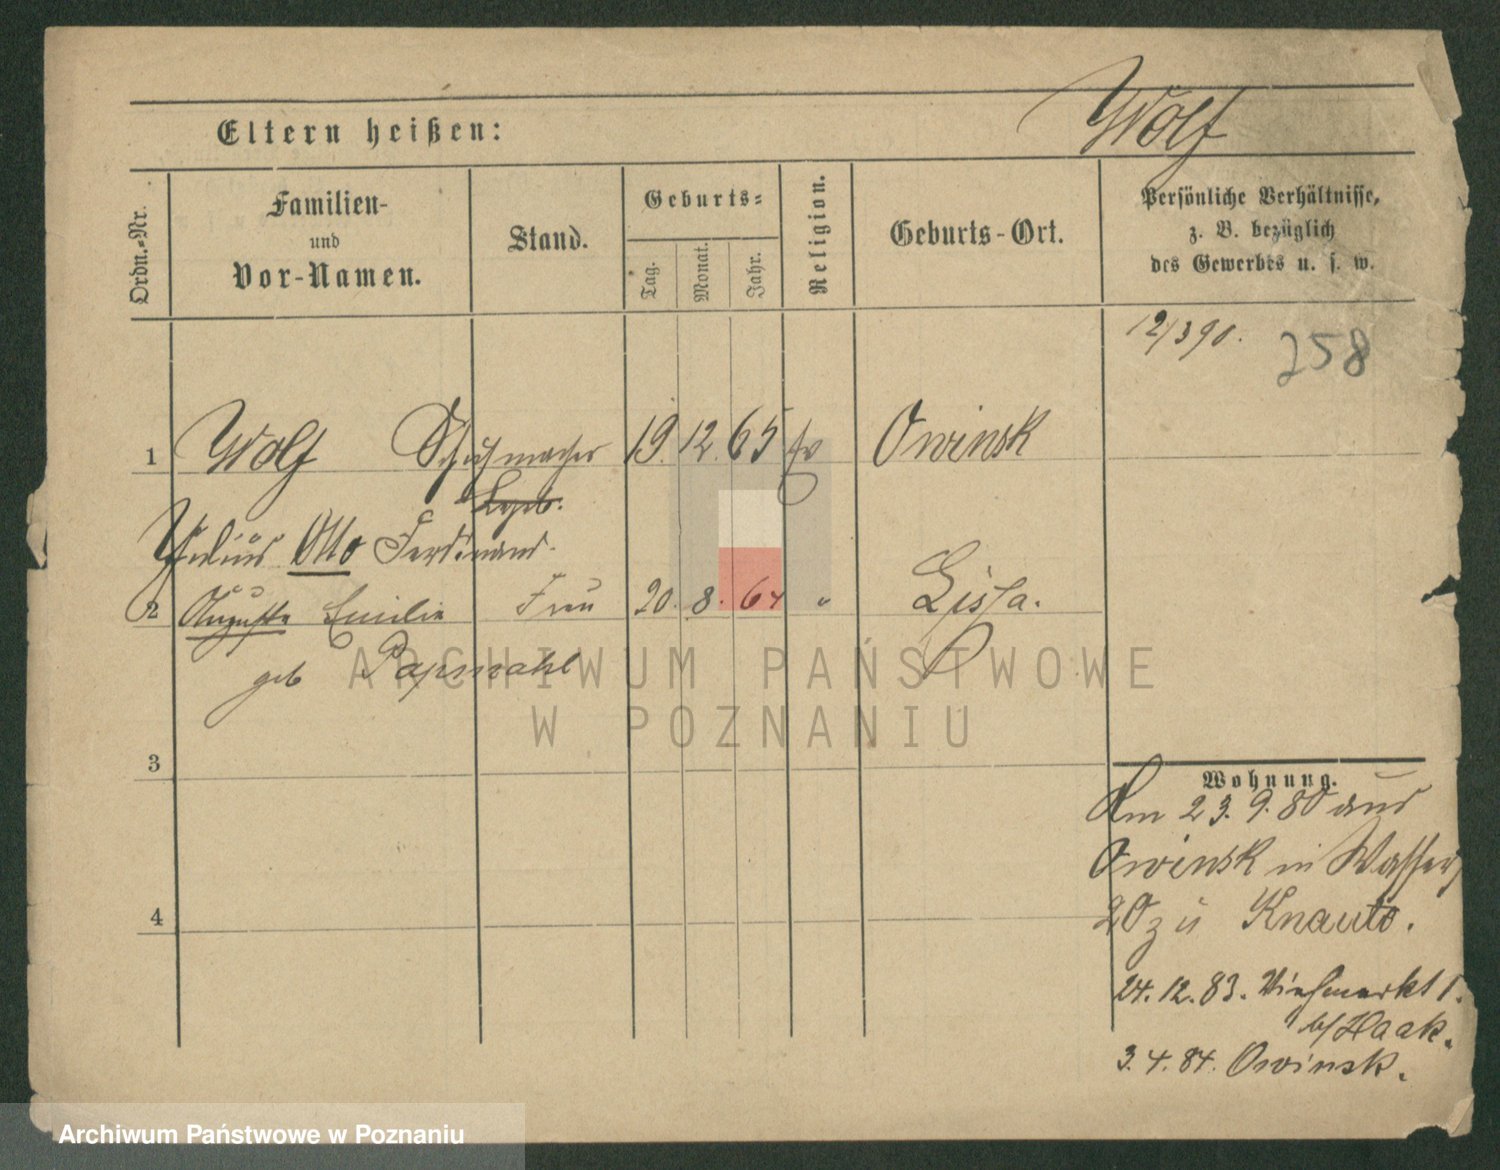 Wolf
Eltern heißen:
Ordn.-Nr.
Familien-
und
Vor-Namen.
Stand.
Geburts-
Tag.
Monat.
Jahr.
Religion.
Geburts-Ort.
Persönliche Verhältnisse,
z. B. bezüglich
des Gewerbes u. s. w.
12/3 90. 258
1 Wolf Schuhmacher 19. 12. 65 ev Owinsk
Julius Otto Ferdinand.
2 Auguste Emilie Frau 20. 8. 64 " Lissa.
geb Papmahl
ARCHIWUM PAŃSTWOWE
W POZNANIU
3
Wohnung.
Am 23. 9. 80 aus
Owinsk in Wasserf
20 zu Knauto.
4
24. 12. 83. Viehmarkt 1.
b/Haak.
3. 4. 84. Owinsk.
Archiwum Państwowe w Poznaniu